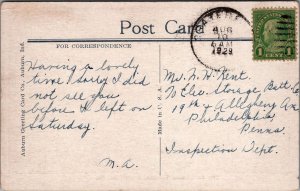 Post Card
FOR CORRESPONDENCE
AUG
10
6 AM
1929
1 CENT 1
Auburn Greeting Card Co., Auburn, Ind.
MADE IN U. S. A.
Having a lovely
time. Sorry I did
not see you
before I left on
Saturday.
M.A.
Mr. N. H. Kent.
Elec. Storage Batt. Co
19th & Allegheny Av
Philadelphia
Penna.
Inspection Dept.